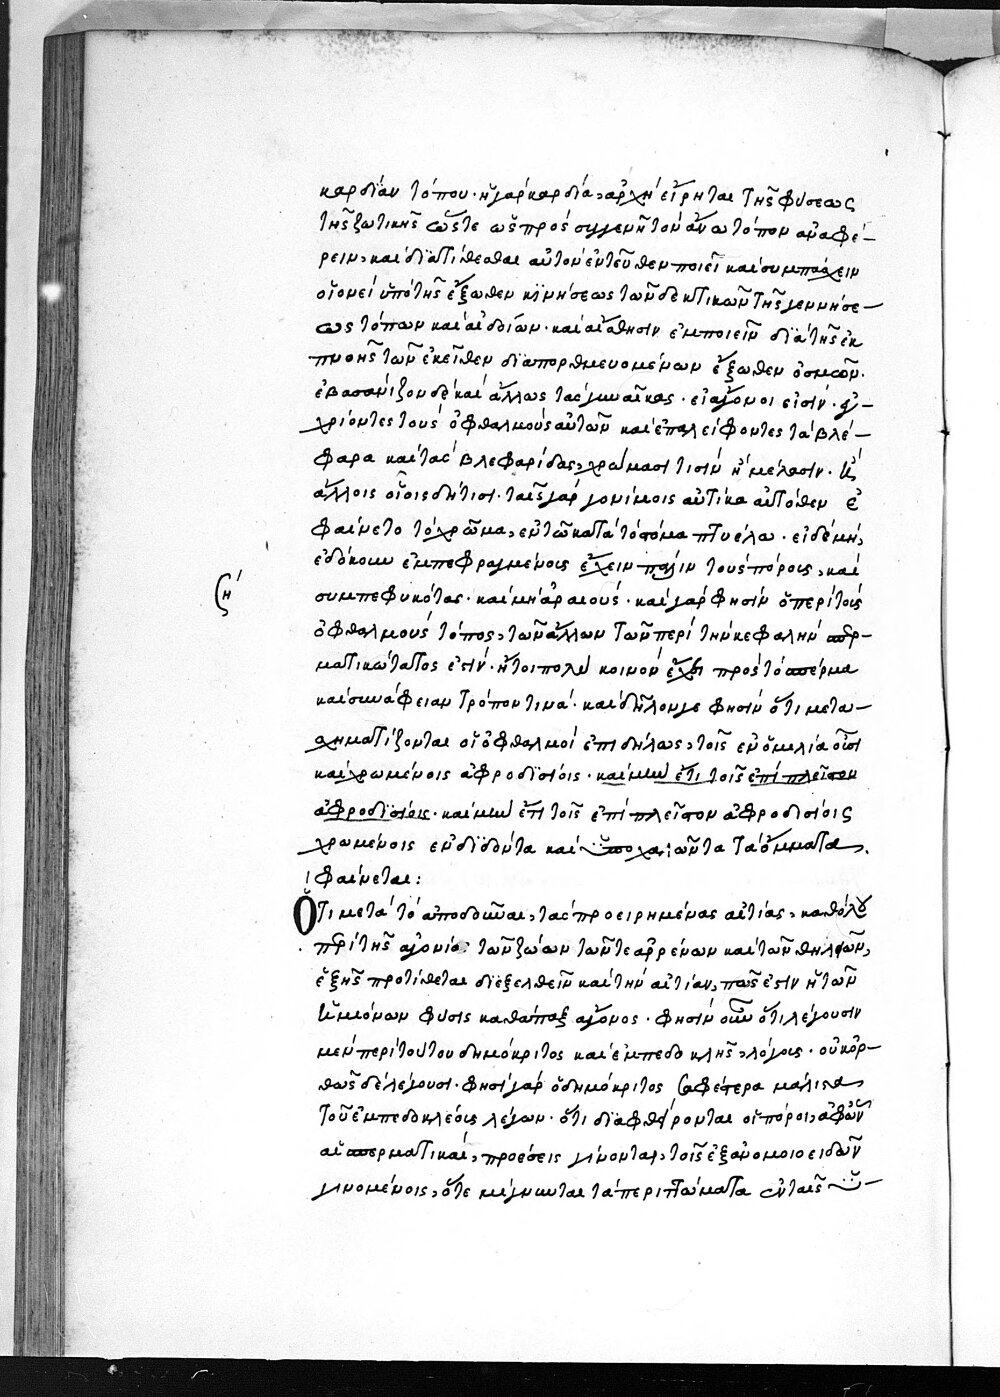 καρδίαν τόπου· ἡ γὰρ καρδία, ἀρχὴ εἴρηται τῆς φύσεως
τῆς ζωτικῆς ὥστε ὡς πρὸς συγγενῆ τὸν ἄνω τόπον ἀναφέ-
ρειν, καὶ διατίθεσθαι αὐτὸν ἐντεῦθεν ποιεῖ καὶ συμπάσχειν
οἱονεὶ ὑπὸ τῆς ἔξωθεν κινήσεως τῶν δεκτικῶν τῆς γεννήσε-
ως τόπων καὶ αἰδοίων· καὶ αἴσθησιν ἐμποιεῖν διὰ τῆς ἐκ
πνοῆς τῶν ἐκεῖθεν διαπορθμευομένων ἔξωθεν ὀσμῶν.
ἐβασάνιζον δὲ καὶ ἄλλως τὰς γυναῖκας· εἰ ἄγονοι εἰσίν· ἐγ-
χρίοντες τοὺς ὀφθαλμοὺς αὐτῶν καὶ ἐπαλείφοντες τὰ βλέ-
φαρα καὶ τὰς βλεφαρίδας, χρώμασί τισιν ἢ μέλασιν· ἢ
ἄλλοις οἵοις δήτισι· ταῖς γὰρ γονίμοις αὐτίκα αὐτόθεν ἐ
φαίνετο τὸ χρῶμα, ἐν τῷ κατὰ τὸ στόμα πτυέλῳ· εἰ δὲ μή,
ἐδόκουν ἐμπεφραγμένους ἔχειν πάλιν τοὺς πόρους, καὶ
συμπεφυκότας· καὶ μὴ ἀραιούς· καὶ γάρ φησιν ὁ περὶ τοὺς
ὀφθαλμοὺς τόπος, τῶν ἄλλων τῶν περὶ τὴν κεφαλὴν σπερ-
ματικώτατος ἐστίν· ἤτοι πολὺ κοινὸν ἔχει πρὸς τὸ σπέρμα
καὶ συνάφειαν τρόπον τινά· καὶ δῆλόν γε φησὶν ὅτι μετα-
σχηματίζονται οἱ ὀφθαλμοὶ ἐπιδήλως, τοῖς ἐν ὁμιλίᾳ οὖσι
καὶ χρωμένοις ἀφροδισίοις· καὶ μὴν ἔτι τοῖς ἐπὶ πλεῖστον
ἀφροδισίοις· καὶ μὴν ἔτι τοῖς ἐπὶ πλεῖστον ἀφροδισίοις
χρωμένοις ἐνδιδόντα καὶ ὑποχαλῶντα τὰ ὄμματα
φαίνεται:
Ὅτι μετὰ τὸ ἀποδοῦναι, τὰς προειρημένας αἰτίας, καθόλου
περὶ τῆς ἀγονίας τῶν ζώων τῶν τε ἀρρένων καὶ τῶν θηλειῶν,
ἑξῆς προτίθεται διεξελθεῖν καὶ τὴν αἰτίαν, πῶς ἐστιν ἡ τῶν
ἡμιόνων φύσις καθάπαξ ἄγονος· φησὶν οὖν ὅτι λέγουσιν
μὲν περὶ τούτου δημόκριτος καὶ ἐμπεδοκλῆς, λόγους· οὐκ ὀρ-
θῶς δὲ λέγουσι· φησὶ γὰρ ὁ δημόκριτος σαφέστερα μάλιστα
τοῦ ἐμπεδοκλέους λέγων· ὅτι διαφθείρονται οἱ πόροι, ἀφ' ὧν
αἱ σπερματικαὶ, προέσεις γίνονται, τοῖς ἐξ ἀνομοιοειδῶν
γινομένοις, ὅτε μίγνυνται τὰ περιττώματα ἐν ταῖς